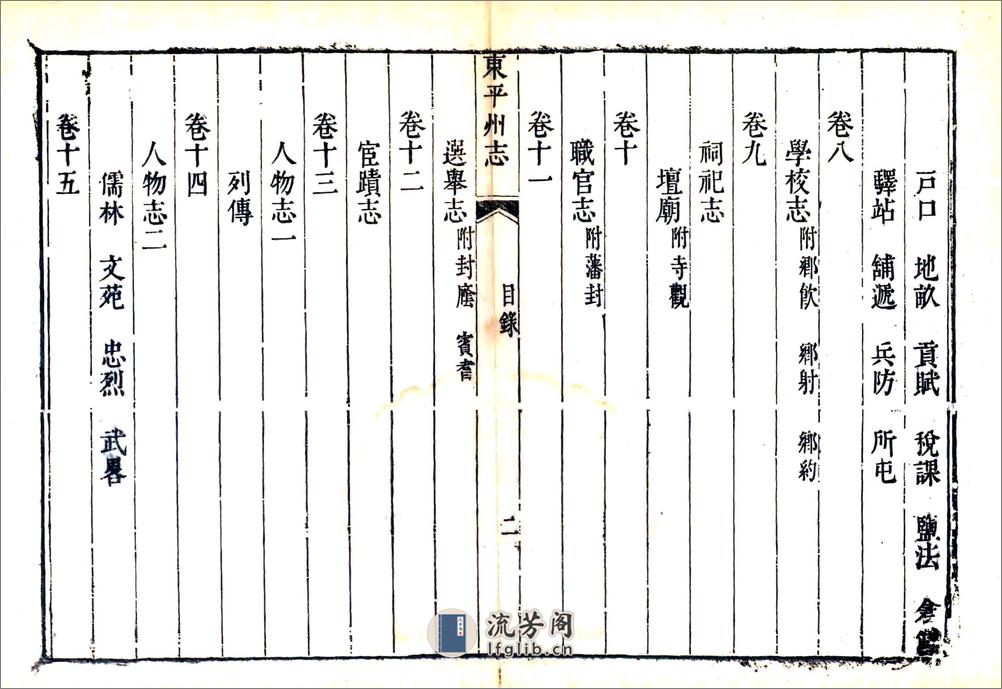 戸口　地畝　貢賦　稅課　鹽法　倉
驛站　舖遞　兵防　所屯
卷八
學校志　附鄉飲　鄉射　鄉約
卷九
祠祀志
壇廟　附寺觀
卷十
職官志　附藩封
卷十一
東平州志　目錄　二
選舉志　附封廕　賓耆
卷十二
宦蹟志
卷十三
人物志一
列傳
卷十四
人物志二
儒林　文苑　忠烈　武畧
卷十五
流芳阁
lfglib.cn